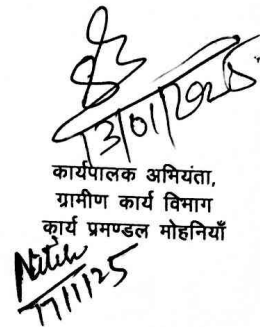 13/01/2025
कार्यपालक अभियंता,
ग्रामीण कार्य विभाग
कार्य प्रमण्डल मोहनियाँ
Nitish
17/1/25